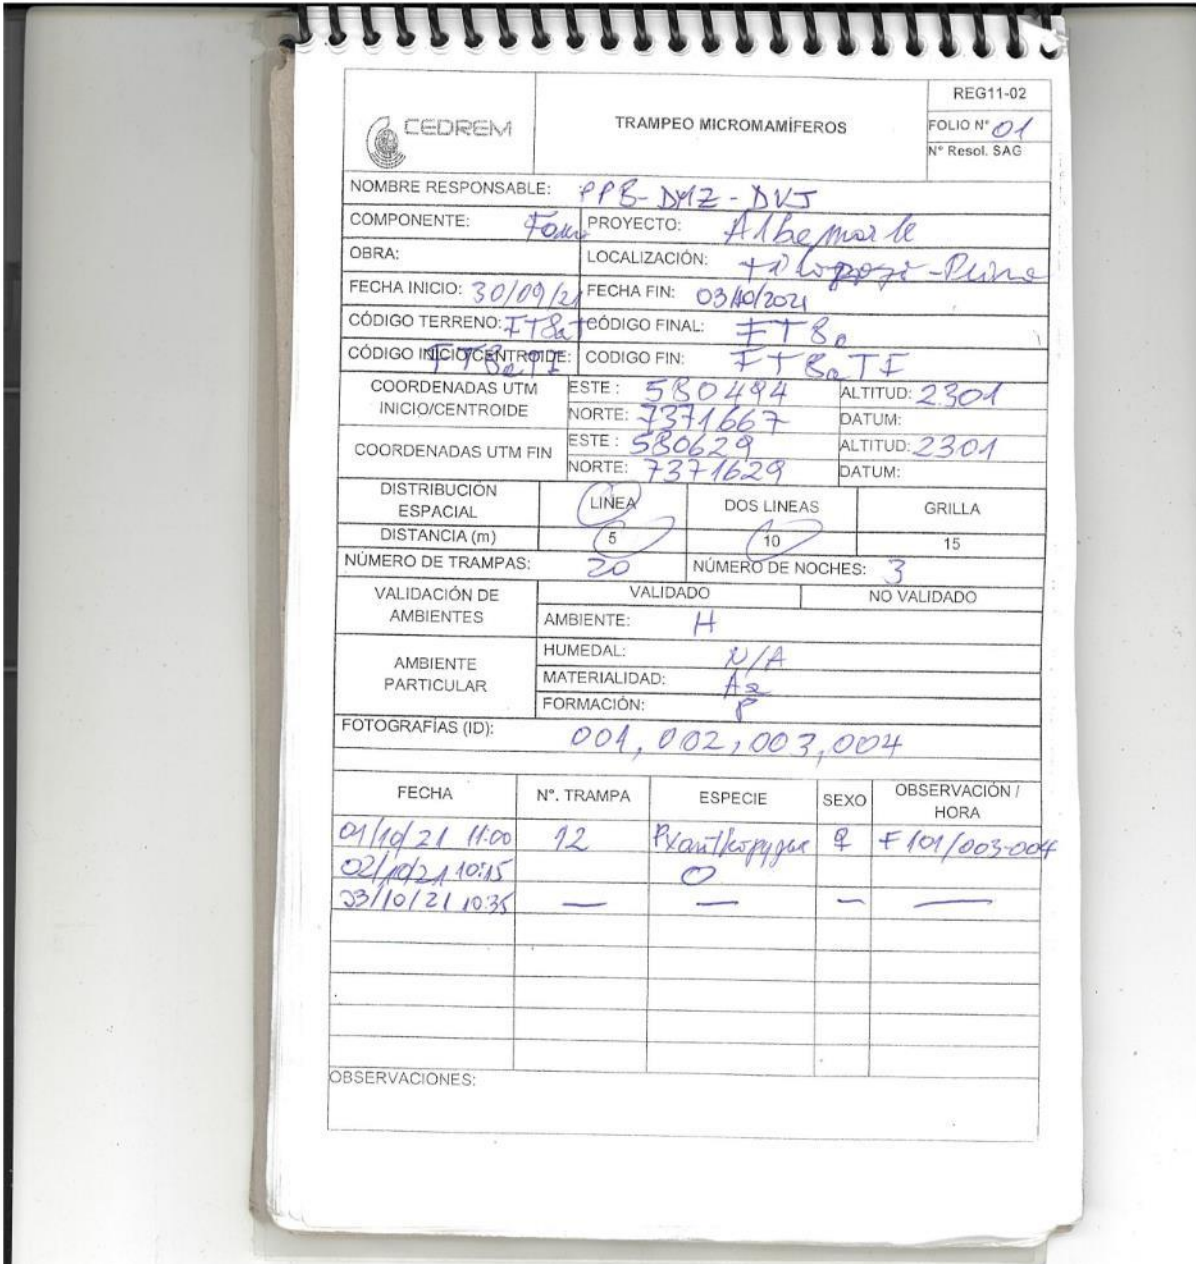 CEDREM
TRAMPEO MICROMAMÍFEROS
REG11-02
FOLIO N° 01
N° Resol. SAG
NOMBRE RESPONSABLE: PPB-DMZ-DVJ
COMPONENTE: PROYECTO: Albemarle
OBRA: LOCALIZACIÓN:
FECHA INICIO: 30/09/21 FECHA FIN: 03/10/2021
CÓDIGO TERRENO: CÓDIGO FINAL:
CÓDIGO INICIO/CENTROIDE: CODIGO FIN:
COORDENADAS UTM INICIO/CENTROIDE ESTE: 580494 ALTITUD: 2301
NORTE: 7371667 DATUM:
COORDENADAS UTM FIN ESTE: 580629 ALTITUD: 2301
NORTE: 7371629 DATUM:
DISTRIBUCIÓN ESPACIAL LINEA DOS LINEAS GRILLA
DISTANCIA (m) 5 10 15
NÚMERO DE TRAMPAS: 20 NÚMERO DE NOCHES: 3
VALIDACIÓN DE AMBIENTES VALIDADO NO VALIDADO
AMBIENTE: H
AMBIENTE PARTICULAR HUMEDAL: N/A
MATERIALIDAD:
FORMACIÓN: P
FOTOGRAFÍAS (ID): 001, 002, 003, 004
FECHA N°. TRAMPA ESPECIE SEXO OBSERVACIÓN / HORA
01/10/21 11:00 12 ♀ F101/003-004
02/10/21 10:15 0
03/10/21 10:35 — — — —
OBSERVACIONES: